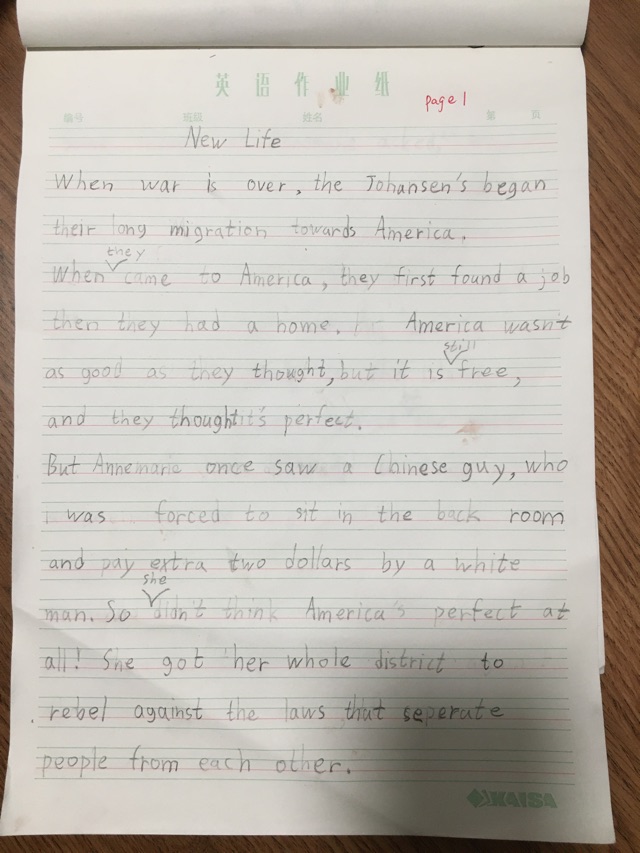 英语作业纸
page 1
编号 班级 姓名 第 页
New Life
When war is over, the Johansen's began
their long migration towards America.
they
When came to America, they first found a job
then they had a home. America wasn't
still
as good as they thought, but it is free,
and they thought it's perfect.
But Annemarie once saw a Chinese guy, who
was forced to sit in the back room
and pay extra two dollars by a white
she
man. So didn't think America's perfect at
all! She got her whole district to
rebel against the laws that seperate
people from each other.
KAISA